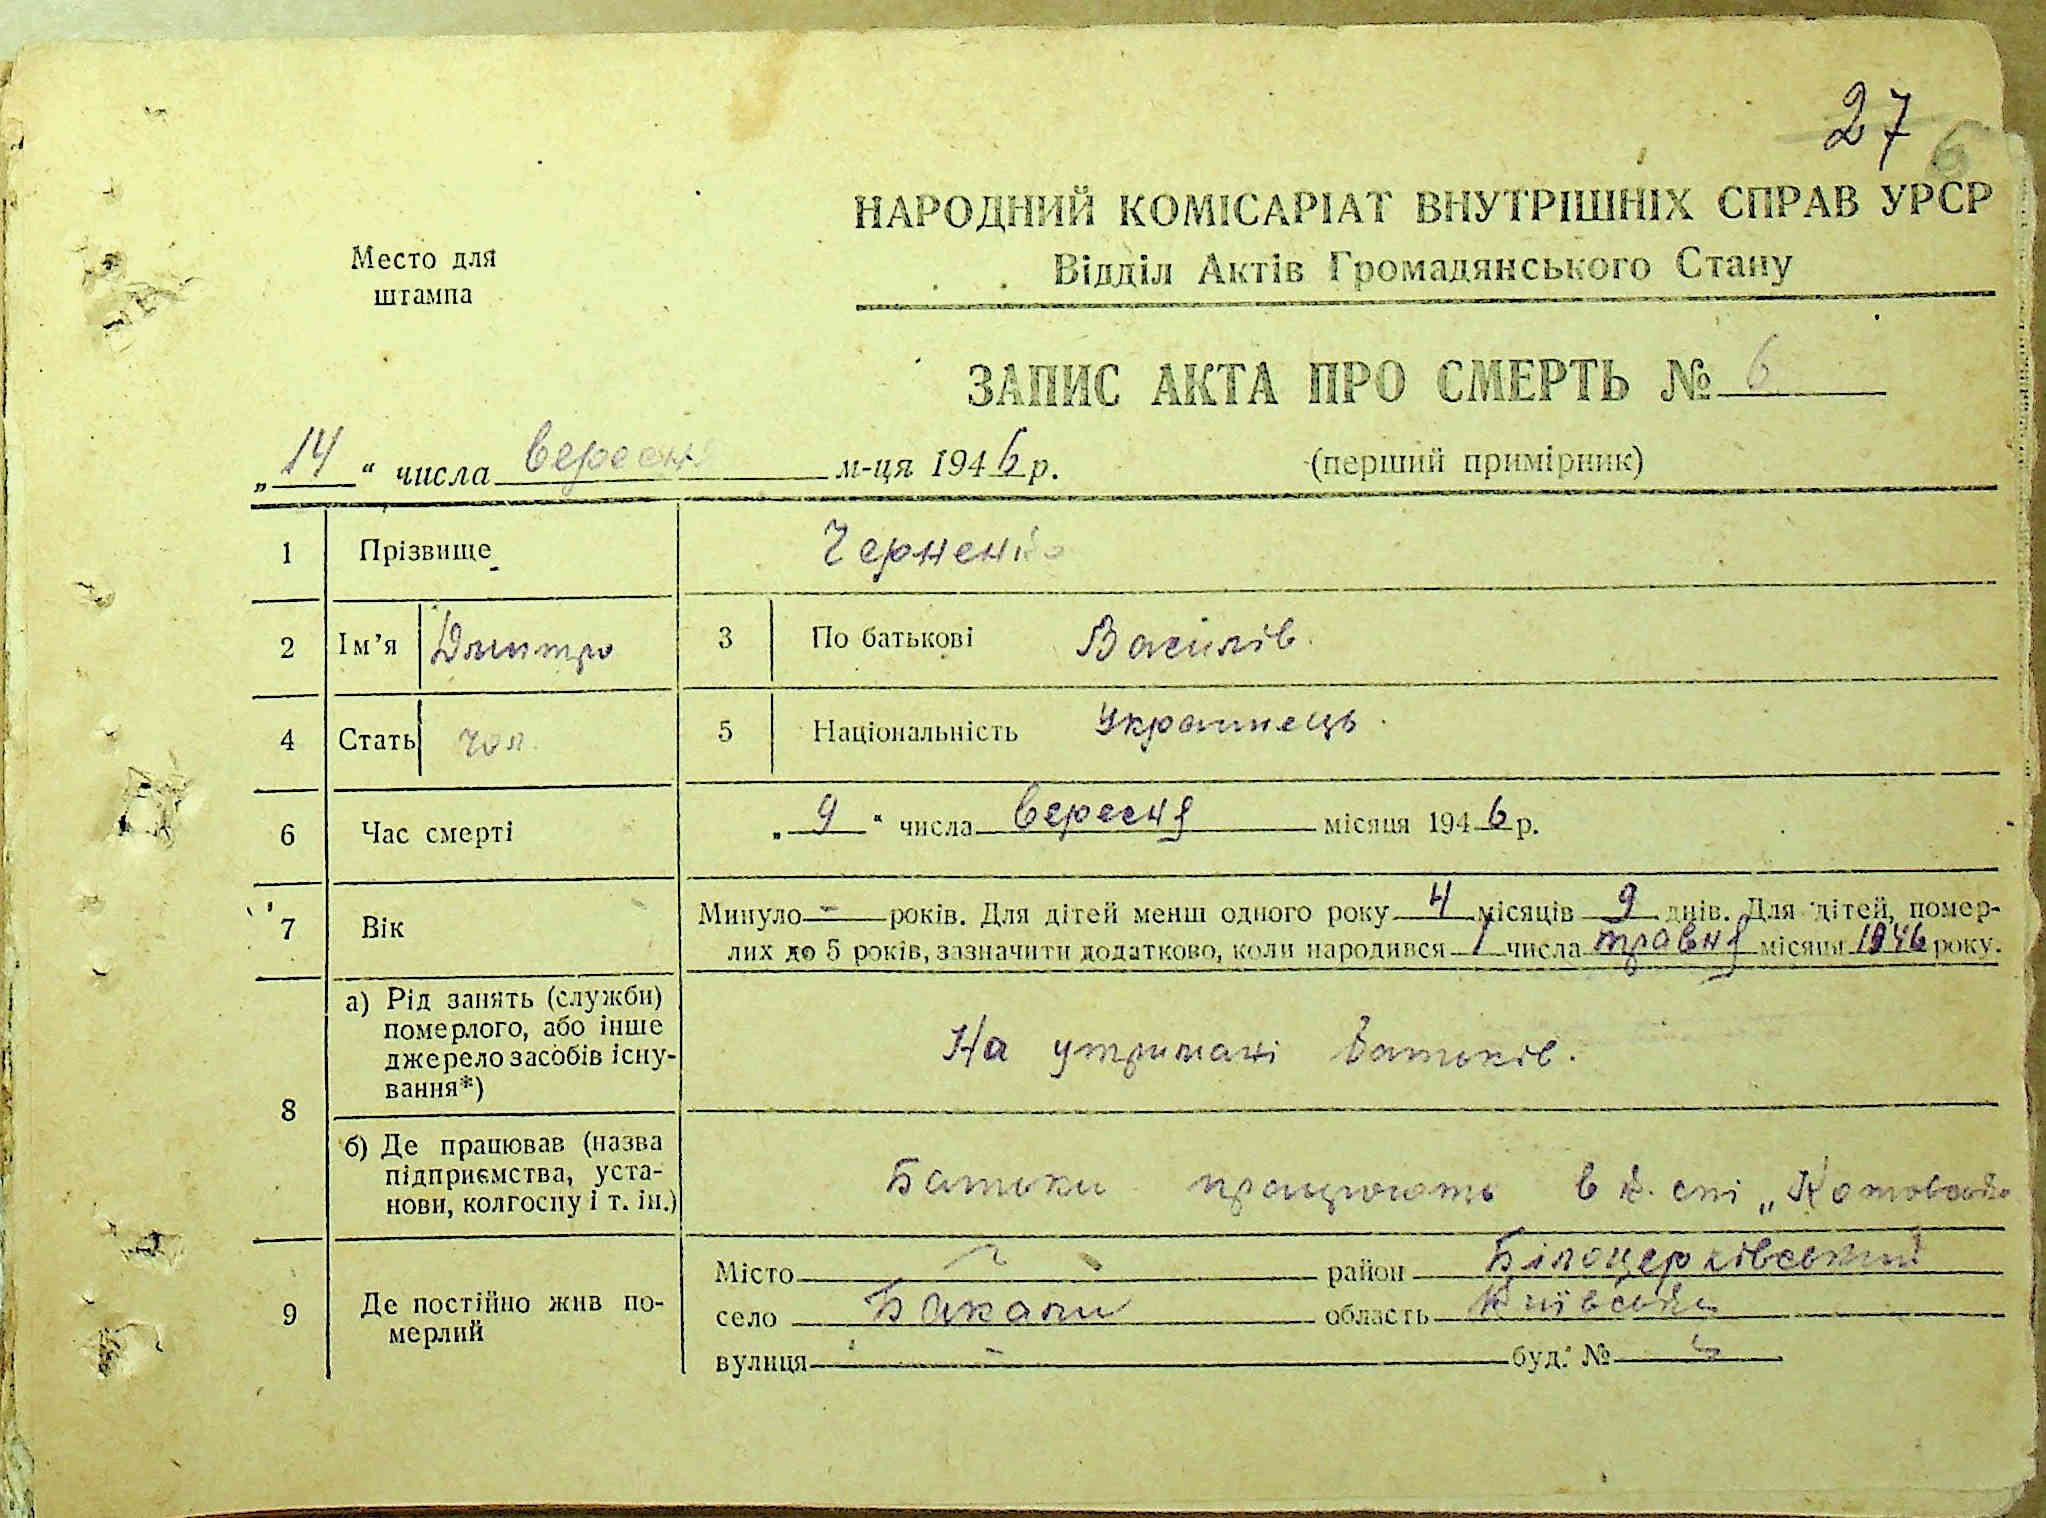 27
6
Место для
штампа
НАРОДНИЙ КОМІСАРІАТ ВНУТРІШНІХ СПРАВ УРСР
Відділ Актів Громадянського Стану
ЗАПИС АКТА ПРО СМЕРТЬ № 6
„14“ числа вересня м-ця 1946 р.
(перший примірник)
1 Прізвище Черненко
2 Ім’я Дмитро 3 По батькові Василів.
4 Стать чол. 5 Національність Украинець.
6 Час смерті „9“ числа вересня місяця 1946 р.
7 Вік Минуло - років. Для дітей менш одного року 4 місяців 9 днів. Для дітей, помер-
лих до 5 років, зазначити додатково, коли народився 1 числа травня місяця 1946 року.
8 а) Рід занять (служби)
померлого, або інше
джерело засобів існу-
вання*)
На утримані батьків.
б) Де працював (назва
підприємства, уста-
нови, колгоспу і т. ін.)
Батьки працюють в к. спі „Котовсько
9 Де постійно жив по-
мерлий
Місто - район Білоцерківський
село Бакали область Київська
вулиця - буд. № -